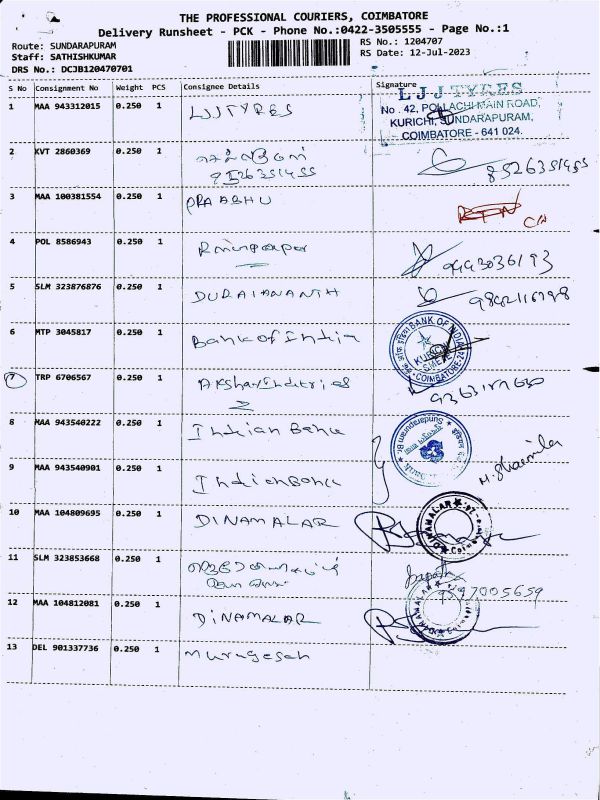 THE PROFESSIONAL COURIERS, COIMBATORE
Delivery Runsheet - PCK - Phone No.:0422-3505555 - Page No.:1
Route: SUNDARAPURAM
RS No.: 1204707
Staff: SATHISHKUMAR
RS Date: 12-Jul-2023
DRS No.: DCJB120470701
S No Consignment No Weight PCS Consignee Details Signature
LJJ TYRES
No. 42, POLLACHI MAIN ROAD,
KURICHI, SUNDARAPURAM,
COIMBATORE - 641 024.
1 MAA 943312015 0.250 1 LJJ TYRES
2 KVT 2860369 0.250 1
8526351455
3 MAA 100381554 0.250 1 PRABHU RTN
4 POL 8586943 0.250 1
5 SLM 323876876 0.250 1 DURAIANANTH
6 MTP 3045817 0.250 1 Bank of India
BANK OF INDIA
KURICHI
COIMBATORE-24
7 TRP 6706567 0.250 1
8 MAA 943540222 0.250 1 Indian Bank
Sundarapuram Br.
9 MAA 943540901 0.250 1 Indian Bank M. Sharmila
10 MAA 104809695 0.250 1 DINAMALAR
DINAMALAR
Coimbatore
11 SLM 323853668 0.250 1
9597005659
12 MAA 104812081 0.250 1 DINAMALAR
DINAMALAR
13 DEL 901337736 0.250 1 Murugesah